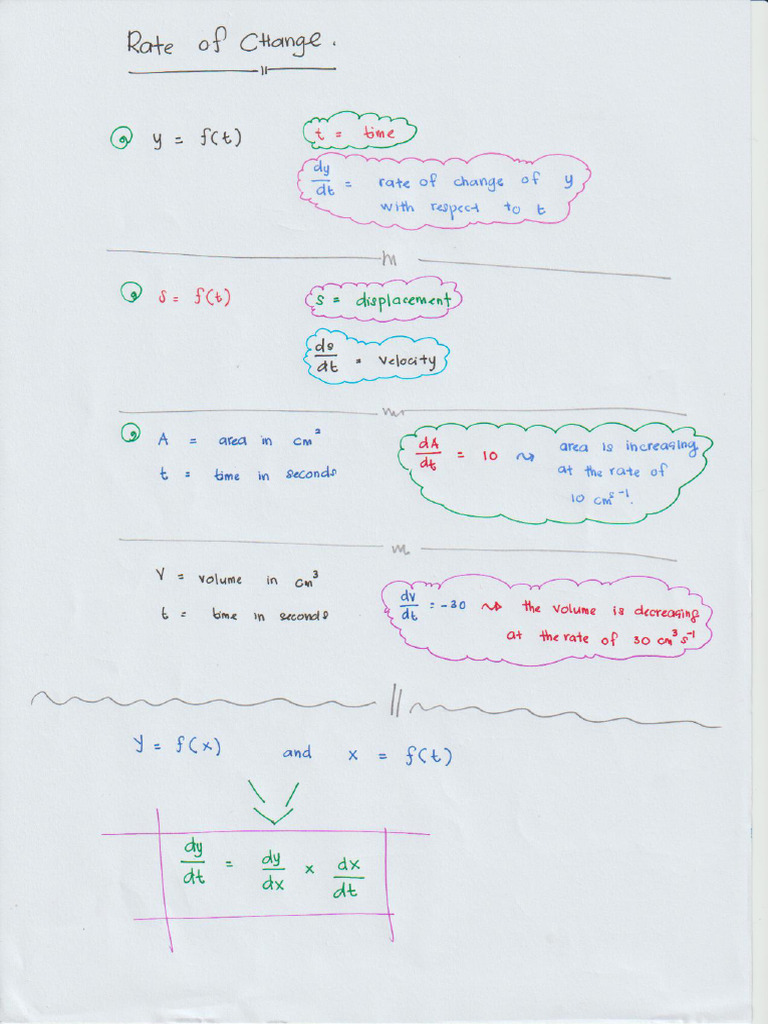 Rate of Change.
y = f(t)
t = time
dy/dt = rate of change of y
with respect to t
s = f(t)
s = displacement
ds/dt = velocity
A = area in cm²
t = time in seconds
dA/dt = 10 ⇝ area is increasing
at the rate of
10 cm²s⁻¹.
V = volume in cm³
t = time in seconds
dv/dt = -30 ⇝ the volume is decreasing
at the rate of 30 cm³s⁻¹
y = f(x) and x = f(t)
dy/dt = dy/dx × dx/dt